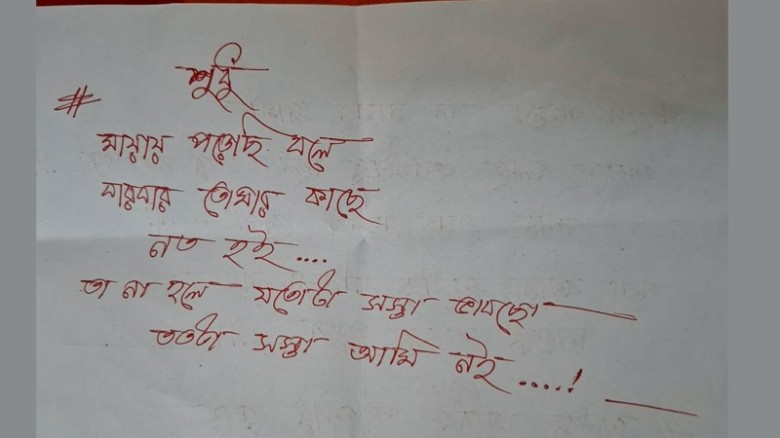 শুধু
#
মায়ায় পড়েছি বলে
বারবার তোমার কাছে
নত হই....
তা না হলে যতোটা সস্তা ভাবছো
ততটা সস্তা আমি নই.....!